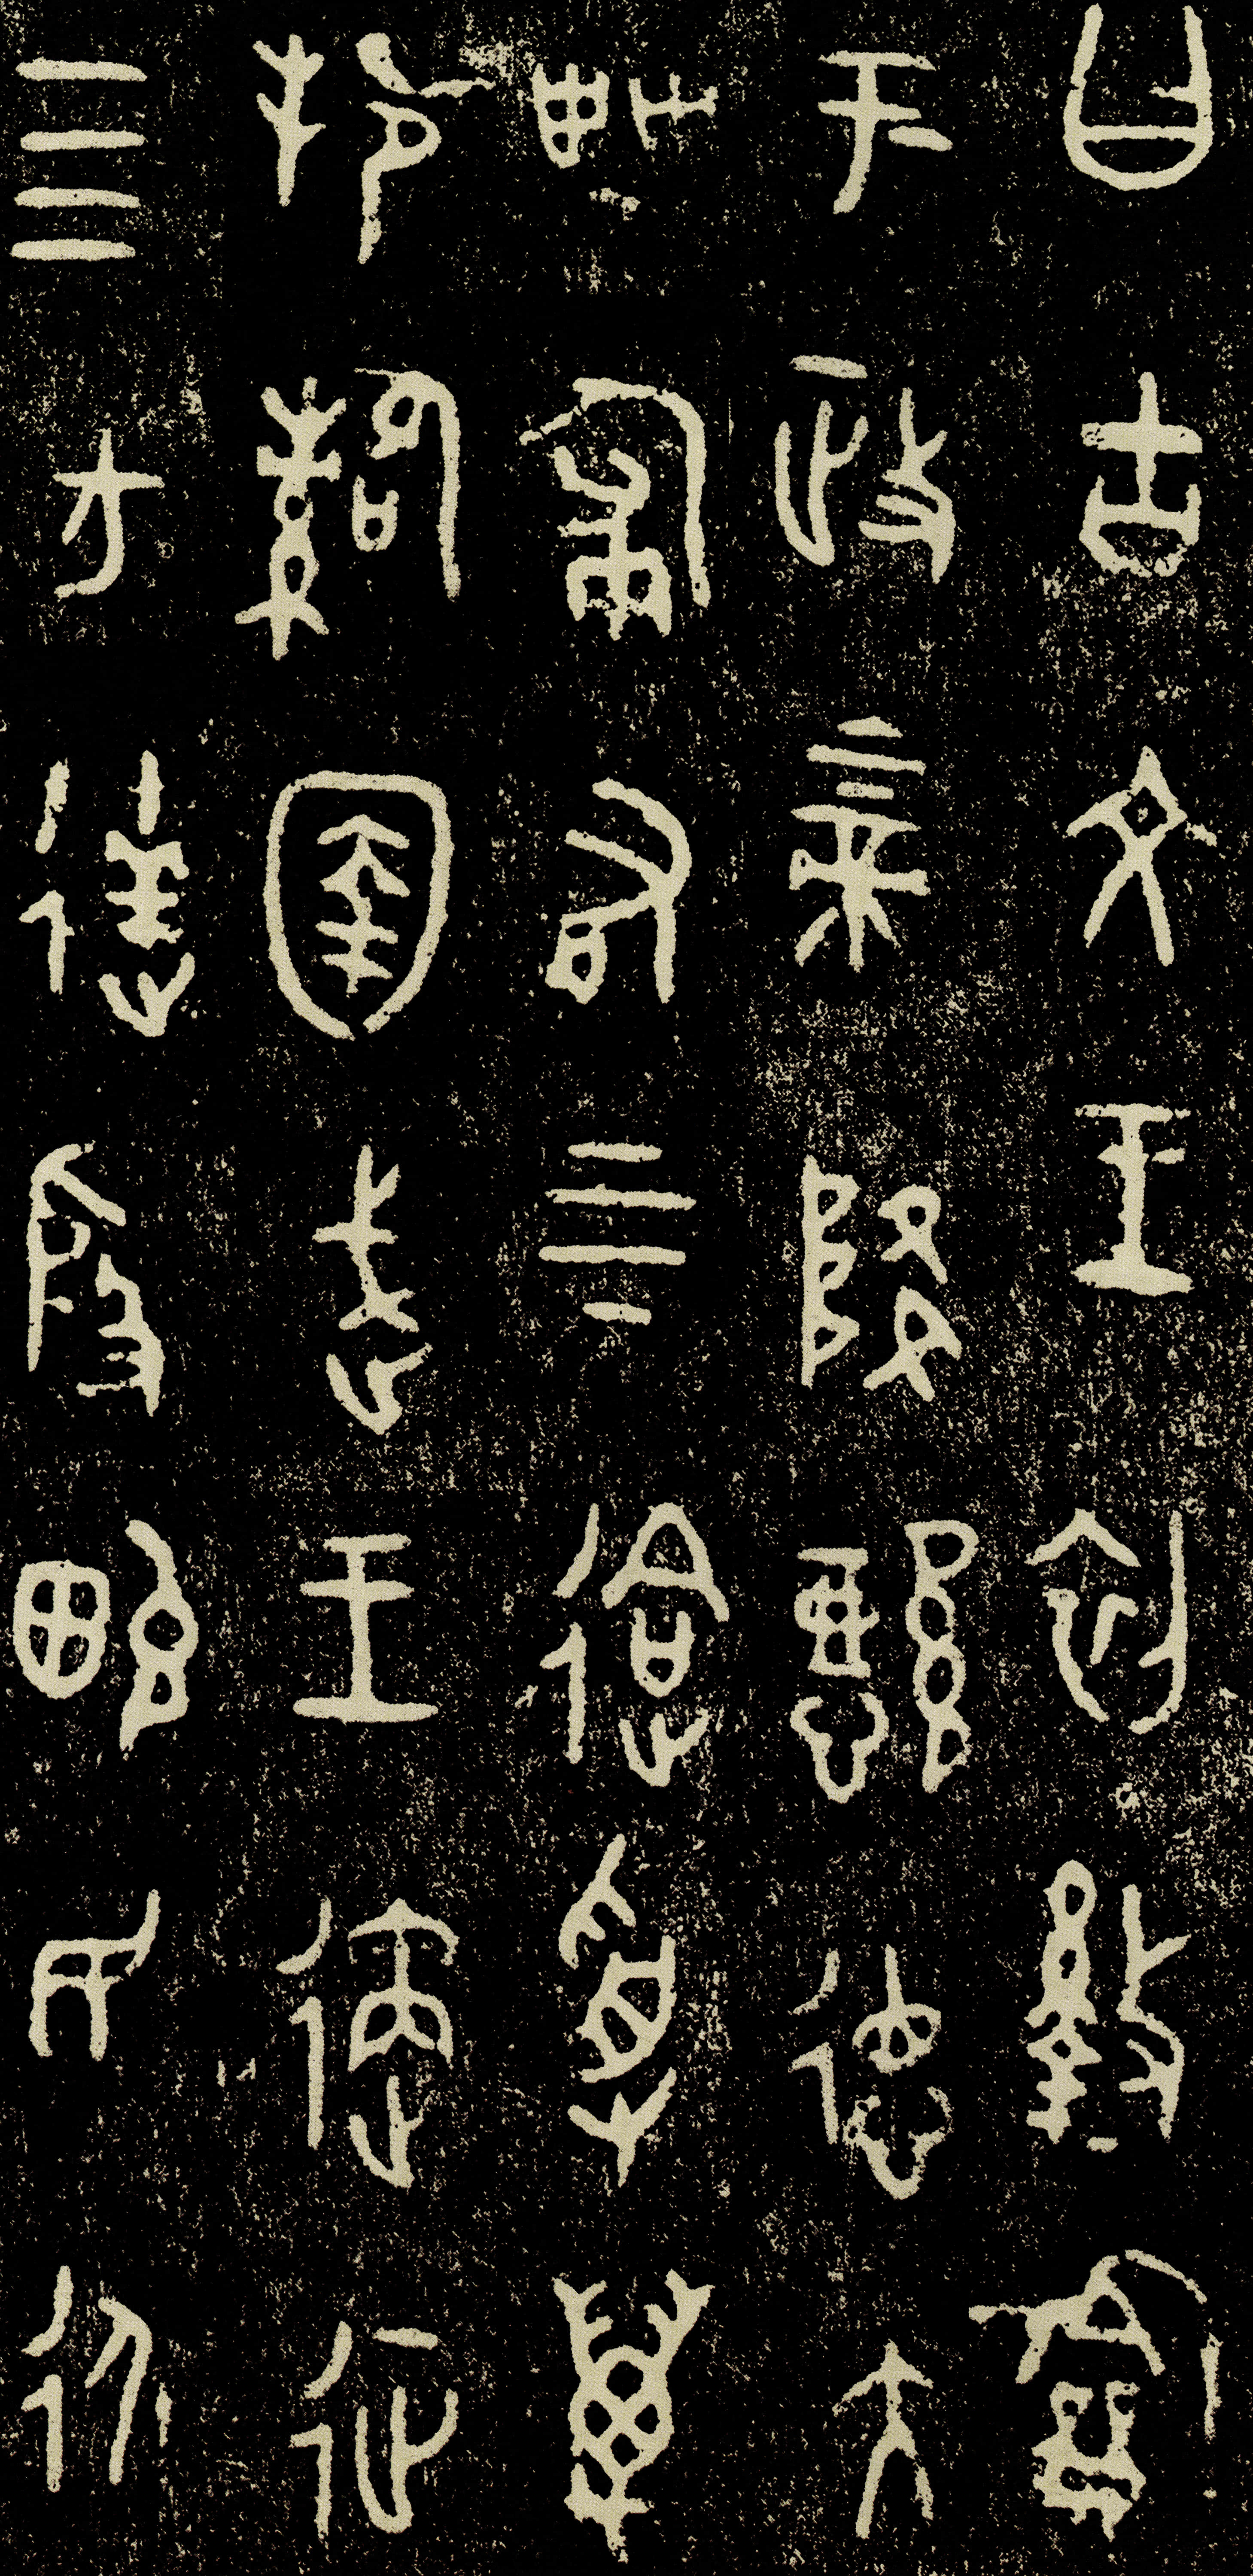 曰古文王初盩龢
于政上帝降懿德大
甹匍有上下迨受萬
邦䋣圉武王遹征
四方達殷畯民永